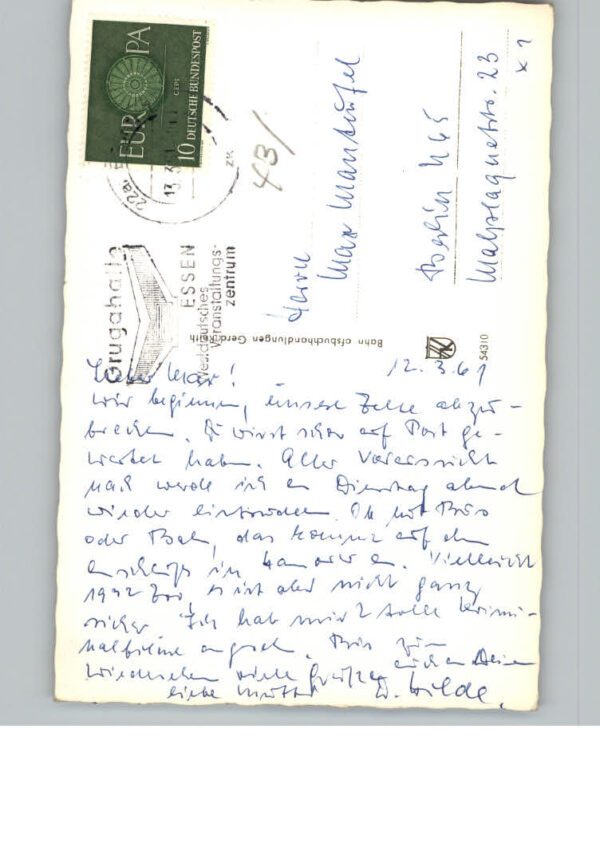 EUROPA
CEPT
10 DEUTSCHE BUNDESPOST
22a
13.3.61
43/
Grugahalle
ESSEN
Westdeutsches
Veranstaltungs-
zentrum
Herrn
Max Manteufel
Berlin N 65
Malplaquetstr. 23
x 1
Bahnhofsbuchhandlungen Gerd Reith
54310
12.3.61
Lieber Max!
Wir beginnen, unsere Zelte abzu-
brechen. Du wirst schon auf Post ge-
wartet haben. Aller Voraussicht
nach werde ich am Dienstag abend
wieder eintrudeln. Ob mit Bus
oder Bahn, das kommt auf den
Anschluß in Hannover an. Vielleicht
19 Zoo, es ist aber nicht ganz
sicher. Ich hab mir 2 tolle Krimi-
nalfilme angeseh. Bis zum
Wiedersehen viele Grüße
auch an Deine
liebe Mutter
D. Wilde.